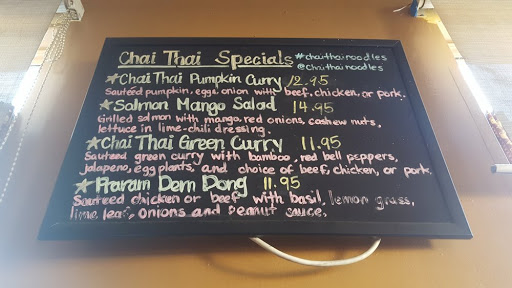 Chai Thai Specials #chaithainoodles
@chaithainoodles
★Chai Thai Pumpkin Curry 12.95
Sauteed pumpkin, egg, onion with beef, chicken, or pork.
★Salmon Mango Salad 14.95
Grilled salmon with mango, red onions, cashew nuts,
lettuce in lime-chili dressing.
★Chai Thai Green Curry 11.95
Sauteed green curry with bamboo, red bell peppers,
jalapeno, egg plants, and choice of beef, chicken, or pork.
★Praram Dem Dong 11.95
Sauteed chicken or beef with basil, lemon grass,
lime leaf, onions and peanut sauce.